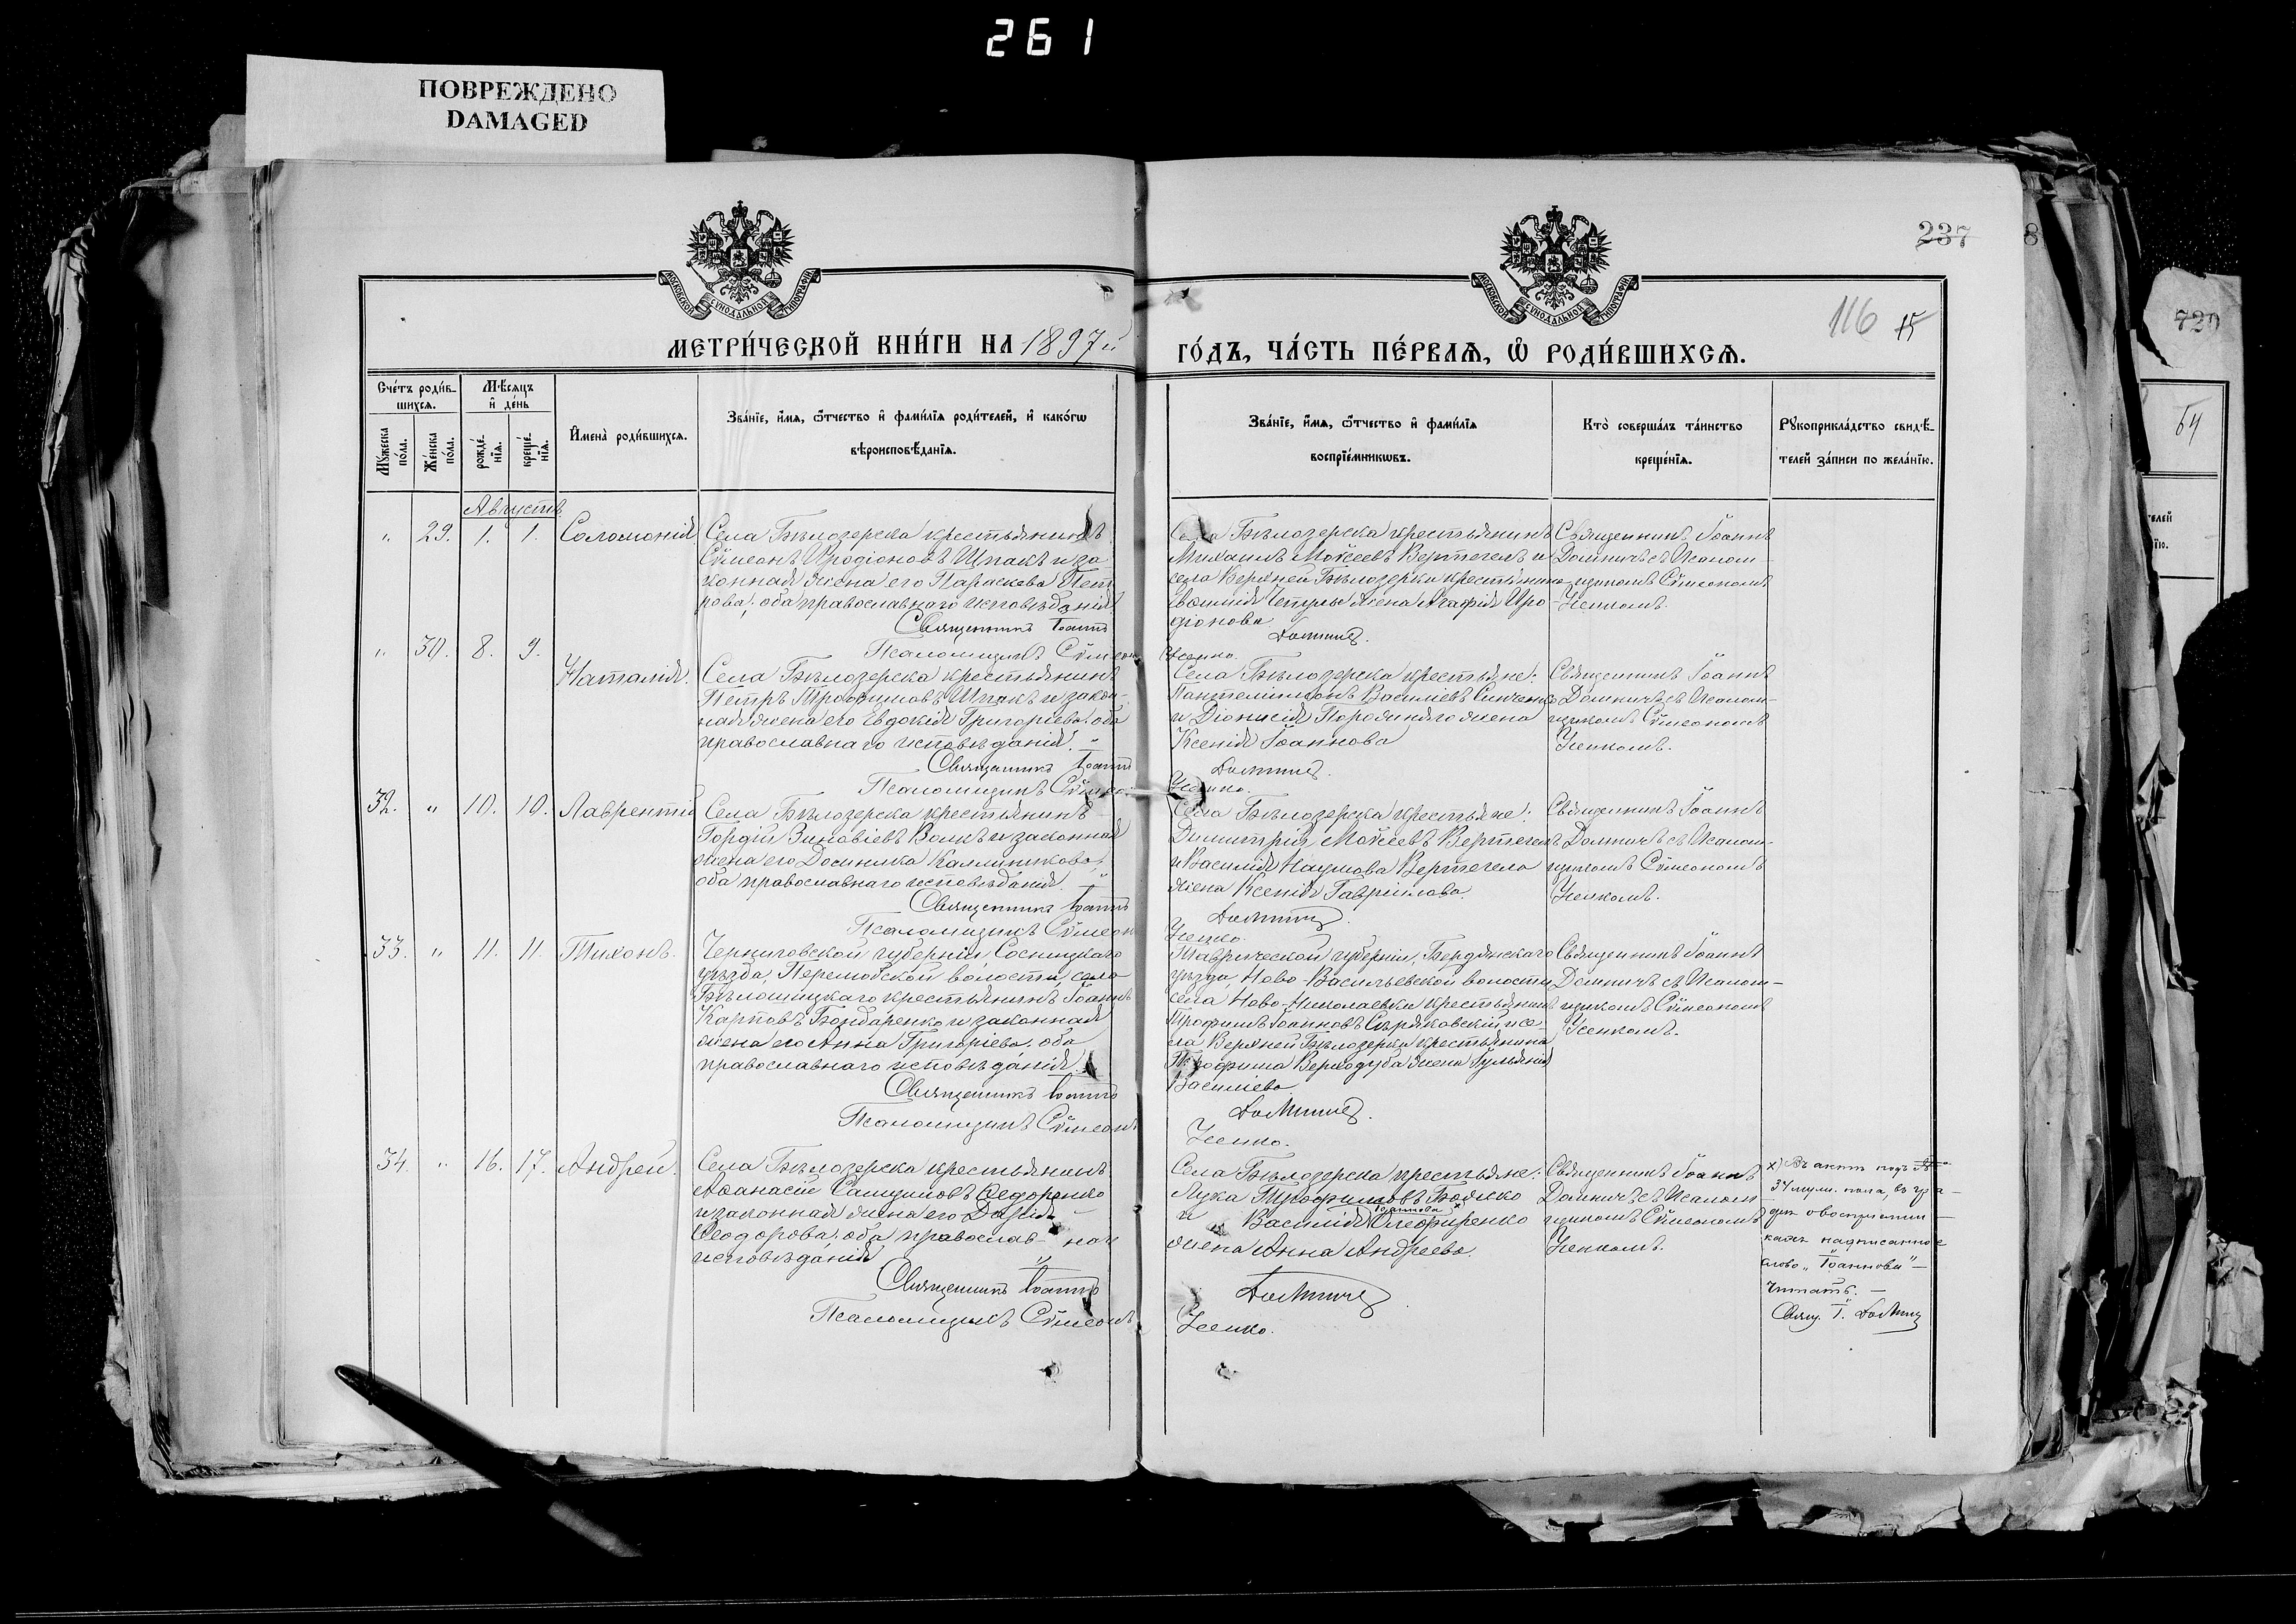 261
ПОВРЕЖДЕНО
DAMAGED
237
8
116 15
729
64
МОСКОВСКОЙ СѴНОДАЛЬНОЙ ТИПОГРАФІИ
МОСКОВСКОЙ СѴНОДАЛЬНОЙ ТИПОГРАФІИ
МЕТРИ́ЧЕСКОЙ КНИ́ГИ НА 1897й ГО́ДЪ, ЧА́СТЬ ПЕ́РВАѦ, Ѡ҆ РОДИ́ВШИХСѦ.
Сче́тъ роди́в-
шихсѧ.
Мѣсѧцъ
и҆ де́нь
Мꙋ́жеска
по́ла.
Же́нска
по́ла.
рожде́-
нїѧ.
креще́-
нїѧ.
И҆мена̀ роди́вшихсѧ.
Зва́нїе, и҆́мѧ, ѻ҆́тчество и҆ фами́лїѧ роди́телей, и҆ како́гѡ
вѣроисповѣ́данїѧ.
Зва́нїе, и҆́мѧ, ѻ҆́тчество и҆ фами́лїѧ
воспрїе́мникѡвъ.
Кто̀ соверша́лъ та́инство
креще́нїѧ.
Рꙋкоприкла́дство свидѣ́-
телей за́писи по жела́нїю.
Августъ
„ 29. 1. 1. Соломонія
Села Бѣлозерска крестьянинъ
Сѵмеонъ Иродіоновъ Шпакъ и за
конная жена его Параскева Пет
рова; оба православнаго исповѣданія
Священникъ Іоаннъ Домничъ.
Псаломщикъ Сѵмеонъ Усенко.
Села Бѣлозерска крестьянинъ
Михаилъ Моѵсеевъ Вертегелъ и
села Верхней Бѣлозерки крестьянина
жена Агафія Иро-
діонова
Священникъ Іоаннъ
Домничъ съ Псалом-
щикомъ Сѵмеономъ
Усенкомъ.
„ 30. 8. 9. Наталія.
Села Бѣлозерска крестьянинъ
Петръ Трофимовъ Шпакъ и закон-
ная жена его Евдокія Григоріева; оба
православнаго исповѣданія.
Священникъ Іоаннъ Домничъ.
Псаломщикъ Сѵмеонъ Усенко.
Села Бѣлозерска крестьяне:
Пантелеимонъ Василіевъ Синченко
и Діонисія жена
Ксенія Іоаннова
Священникъ Іоаннъ
Домничъ съ Псалом-
щикомъ Сѵмеономъ
Усенкомъ.
32. „ 10. 10. Лаврентій
Села Бѣлозерска крестьянинъ
Гордій Зиновіевъ Волкъ и законная
жена его Досиника Каллиникова;
оба православнаго исповѣданія.
Священникъ Іоаннъ Домничъ.
Псаломщикъ Сѵмеонъ Усенко.
Села Бѣлозерска крестьяне:
Димитрій Моѵсеевъ Вертегелъ
и Василія Наумова Вертегела
жена Ксенія Гавріилова.
Священникъ Іоаннъ
Домничъ съ Псалом-
щикомъ Сѵмеономъ
Усенкомъ.
33. „ 11. 11. Тихонъ.
Черниговской губерніи, Сосницкаго
уѣзда, волости, села
крестьянинъ Іоаннъ
Карповъ Бондаренко и законная
жена его Анна Григоріева; оба
православнаго исповѣданія.
Священникъ Іоаннъ Домничъ.
Псаломщикъ Сѵмеонъ Усенко.
Таврической губерніи, Бердянскаго
уѣзда, Ново-Васильевской волости
села Ново-Николаевки крестьянинъ
Трофимъ Іоанновъ и се-
ла Верхней Бѣлозерки крестьянина
Трофима Верходуба жена Іуліанія
Василіева
Священникъ Іоаннъ
Домничъ съ Псалом-
щикомъ Сѵмеономъ
Усенкомъ.
34. „ 16. 17. Андрей.
Села Бѣлозерска крестьянинъ
Аѳанасій Самуиловъ Ѳедоренко
и законная жена его Дарія
Ѳеодорова; оба православ- наго
исповѣданія
Священникъ Іоаннъ Домничъ
Псаломщикъ Сѵмеонъ Усенко.
Села Бѣлозерска крестьяне:
Лука Трофимовъ Бойко
Іоаннова х
и Василія Олефиренко
жена Анна Андреева.
Священникъ Іоаннъ
Домничъ съ Псалом
щикомъ Сѵмеономъ
Усенкомъ.
х) Въ актѣ подъ №
34 муж. пола, въ гра-
фѣ о воспріемни-
кахъ надписанное
слово „Іоаннова"—
читать. —
Свящ. І. Домничъ